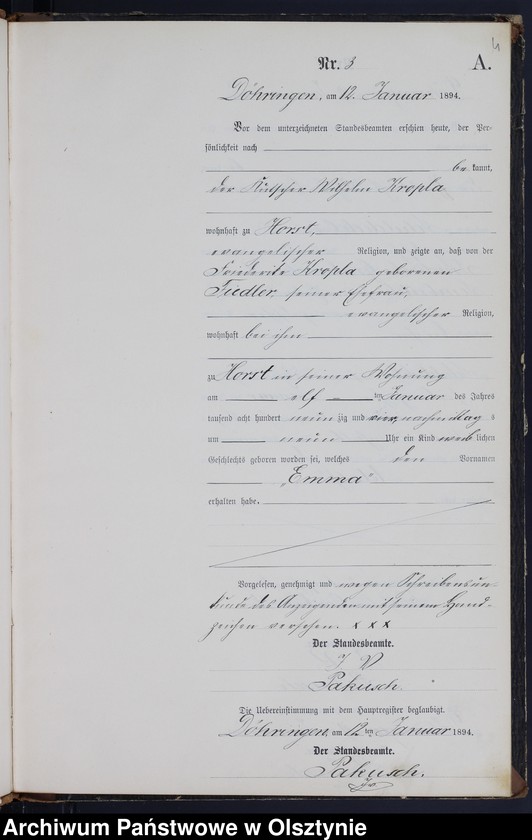 4
Nr. 3 A.
Döhringen, am 12. Januar 1894.
Vor dem unterzeichneten Standesbeamten erschien heute, der Per-
sönlichkeit nach
be kannt,
der Kutscher Wilhelm Kropla
wohnhaft zu Horst,
evangelischer Religion, und zeigte an, daß von der
Friederike Kropla geborenen
Fiedler, seiner Ehefrau,
evangelischer Religion,
wohnhaft bei ihm
zu Horst in seiner Wohnung
am elf ten Januar des Jahres
tausend acht hundert neun zig und vier, nachmittag s
um neun Uhr ein Kind weib lichen
Geschlechts geboren worden sei, welches den Vornamen
„Emma"
erhalten habe.
Vorgelesen, genehmigt und wegen Schreibensun-
kunde des Anzeigenden mit seinem Hand-
zeichen versehen. x x x
Der Standesbeamte.
J. V
Pakusch.
Die Uebereinstimmung mit dem Hauptregister beglaubigt.
Döhringen, am 12 ten Januar 1894.
Der Standesbeamte.
Pakusch.
J.V.
Archiwum Państwowe w Olsztynie